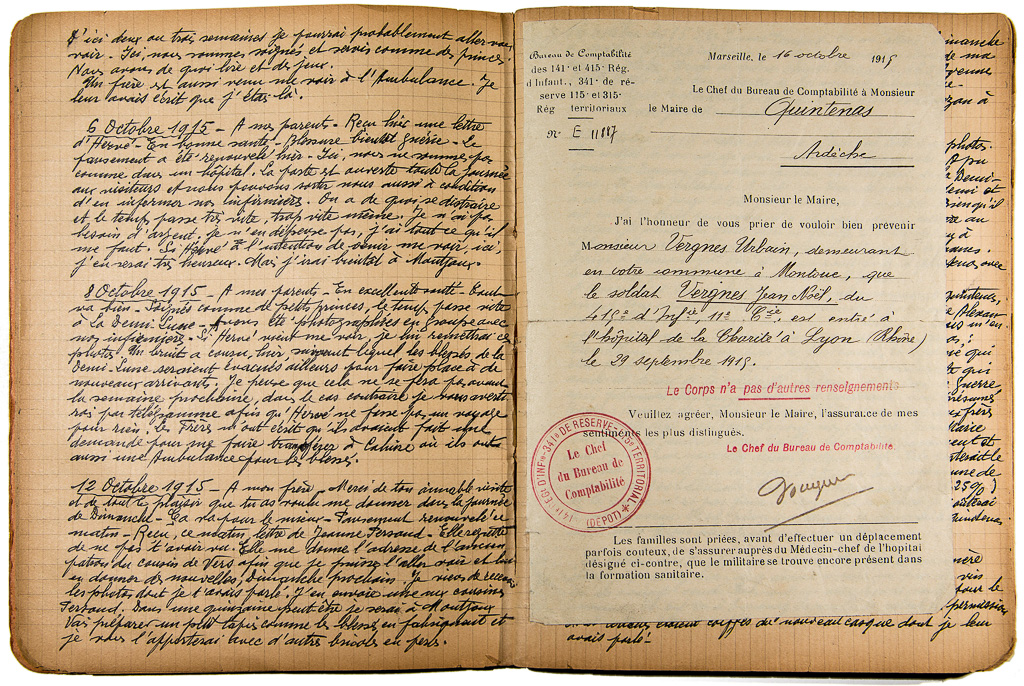 D'ici deux ou trois semaines je pourrai probablement aller vous
voir. Ici, nous sommes soignés et servis comme des princes.
Nous avons de quoi lire et des jeux.
Un frère est aussi venu me voir à l'Ambulance. Je
leur avais écrit que j'étais là.
6 Octobre 1915 - A mes parents - Reçu hier une lettre
d'Hervé - En bonne santé - Blessure bientôt guérie - Le
pansement a été renouvelé hier - Ici, nous ne sommes pas
comme dans un hôpital. La porte est ouverte toute la journée
aux visiteurs et nous pouvons sortir nous aussi à condition
d'en informer nos infirmiers. On a de quoi se distraire
et le temps passe très vite, trop vite même. Je n'ai pas
besoin d'argent, je n'en dépense pas, j'ai tout ce qu'il
me faut. Si Hervé a l'intention de venir me voir, ici,
j'en serai très heureux. Mais j'irai bientôt à Montjoux.
8 Octobre 1915 - A mes parents - En excellente santé - Tout
va bien - Soignés comme de petits princes, le temps passe vite
à La Demi-Lune - Avons été photographiés en groupe avec
nos infirmiers - Si Hervé vient me voir, je lui remettrai ces
photos. Un bruit a couru, hier, suivant lequel les blessés de la
Demi-Lune seraient évacués ailleurs pour faire place à de
nouveaux arrivants. Je pense que cela ne se fera pas avant
la semaine prochaine, dans le cas contraire je vous averti-
rai par télégramme afin qu'Hervé ne fasse pas un voyage
pour rien. Les Frères m'ont écrit qu'ils avaient fait une
demande pour me faire transférer à Caluire où ils ont
aussi une Ambulance pour les blessés.
12 Octobre 1915 - A mon frère - Merci de ton aimable visite
et de tout le plaisir que tu as voulu me donner dans la journée
de Dimanche - Ça va pour le mieux - Pansement renouvelé ce
matin - Reçu, ce matin, lettre de Jeanne Ferraud - Elle regrette
de ne pas t'avoir vu. Elle me donne l'adresse de
du cousin de Vers afin que je puisse l'aller voir et lui
en donner des nouvelles, Dimanche prochain. Je viens de recevoir
les photos dont je t'avais parlé. J'en envoie une aux cousins
Ferraud. Dans une quinzaine peut être je serai à Montjoux
Vais préparer un petit tapis comme les blessés en fabriquent et
je vous l'apporterai avec d'autres bricoles en perles.
Bureau de Comptabilité
des 141e et 415e Rég.
d'Infant., 341e de ré-
serve 115e et 315e
Rég territoriaux
N° E 11117
Marseille, le 16 octobre 1915
Le Chef du Bureau de Comptabilité à Monsieur
le Maire de Quintenas
Ardèche
Monsieur le Maire,
J'ai l'honneur de vous prier de vouloir bien prévenir
Monsieur Vergnes Urbain, demeurant
en votre commune à Montouc, que
le soldat Vergnes Jean Noël, du
415e d'Infie 11e Cie, est entré à
l'hôpital de la Charité à Lyon (Rhône)
le 29 septembre 1915.
Le Corps n'a pas d'autres renseignements
Veuillez agréer, Monsieur le Maire, l'assurance de mes
sentiments les plus distingués.
Le Chef du Bureau de Comptabilité.
Le Chef
du Bureau de
Comptabilité
(DÉPOT)
Les familles sont priées, avant d'effectuer un déplacement
parfois couteux, de s'assurer auprès du Médecin-chef de l'hopital
désigné ci-contre, que le militaire se trouve encore présent dans
la formation sanitaire.
coiffés du nouveau casque dont je leur
avais parlé -